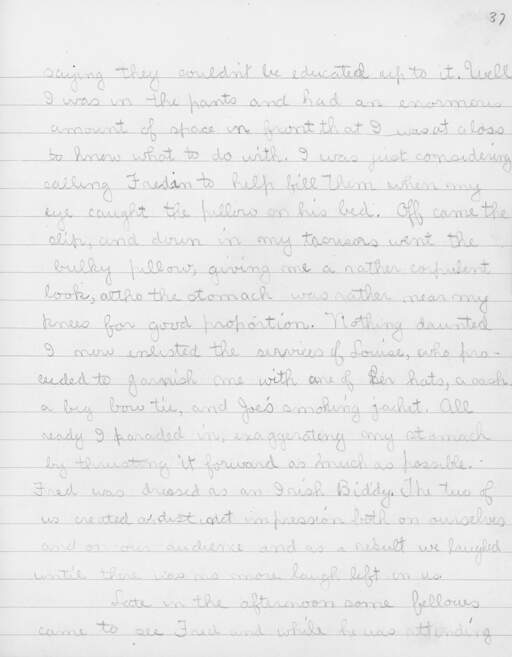 37
saying they couldn't be educated up to it. Well
I was in the pants and had an enormous
amount of space in front that I was at a loss
to know what to do with. I was just considering
calling Fred in to help fill them when my
eye caught the pillow on his bed. Off came the
slip, and down in my trousers went the
bulky pillow, giving me a rather corpulent
look, altho the stomach was rather near my
knees for good proportion. Nothing daunted
I now enlisted the services of Louise, who pro-
ceeded to garnish me with one of her hats, a sash
a big bow tie, and Joe's smoking jacket. All
ready I paraded in, exaggerating my stomach
by thrusting it forward as much as possible.
Fred was dressed as an Irish Biddy. The two of
us created a distinct impression both on ourselves
and on our audience and as a result we laughed
until there was no more laugh left in us.
Late in the afternoon some fellows
came to see Fred and while he was attending